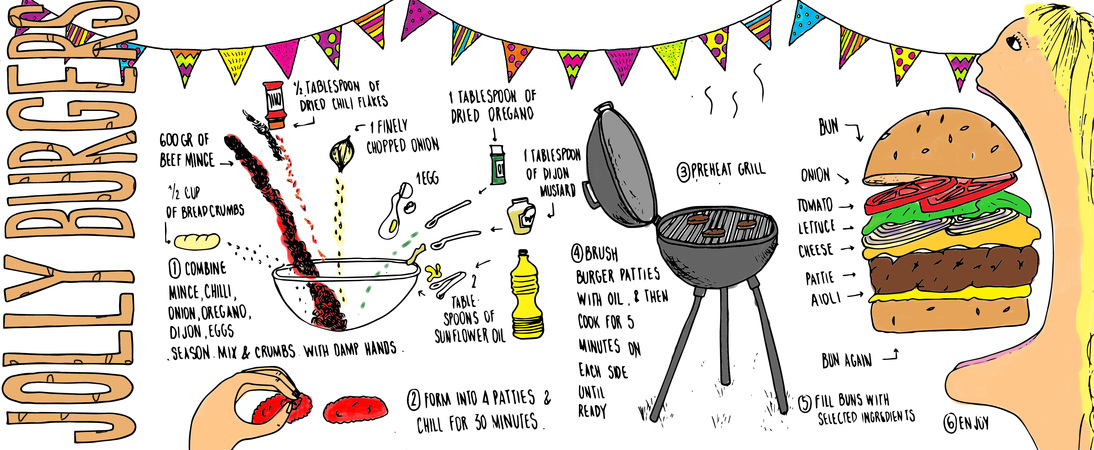 JOLLY BURGERS
600 GR OF
BEEF MINCE
1/2 CUP
OF BREADCRUMBS
1/2 TABLESPOON OF
DRIED CHILI FLAKES
1 FINELY
CHOPPED ONION
1 EGG
1 TABLESPOON OF
DRIED OREGANO
1 TABLESPOON
OF DIJON
MUSTARD
2
TABLE
SPOONS OF
SUNFLOWER OIL
1 COMBINE
MINCE, CHILI,
ONION, OREGANO,
DIJON, EGGS
. SEASON. MIX & CRUMBS. WITH DAMP HANDS.
2 FORM INTO 4 PATTIES &
CHILL FOR 30 MINUTES.
3 PREHEAT GRILL
4 BRUSH
BURGER PATTIES
WITH OIL, & THEN
COOK FOR 5
MINUTES ON
EACH SIDE
UNTIL
READY
BUN
ONION
TOMATO
LETTUCE
CHEESE
PATTIE
AIOLI
BUN AGAIN
5 FILL BUNS WITH
SELECTED INGREDIENTS
6 ENJOY